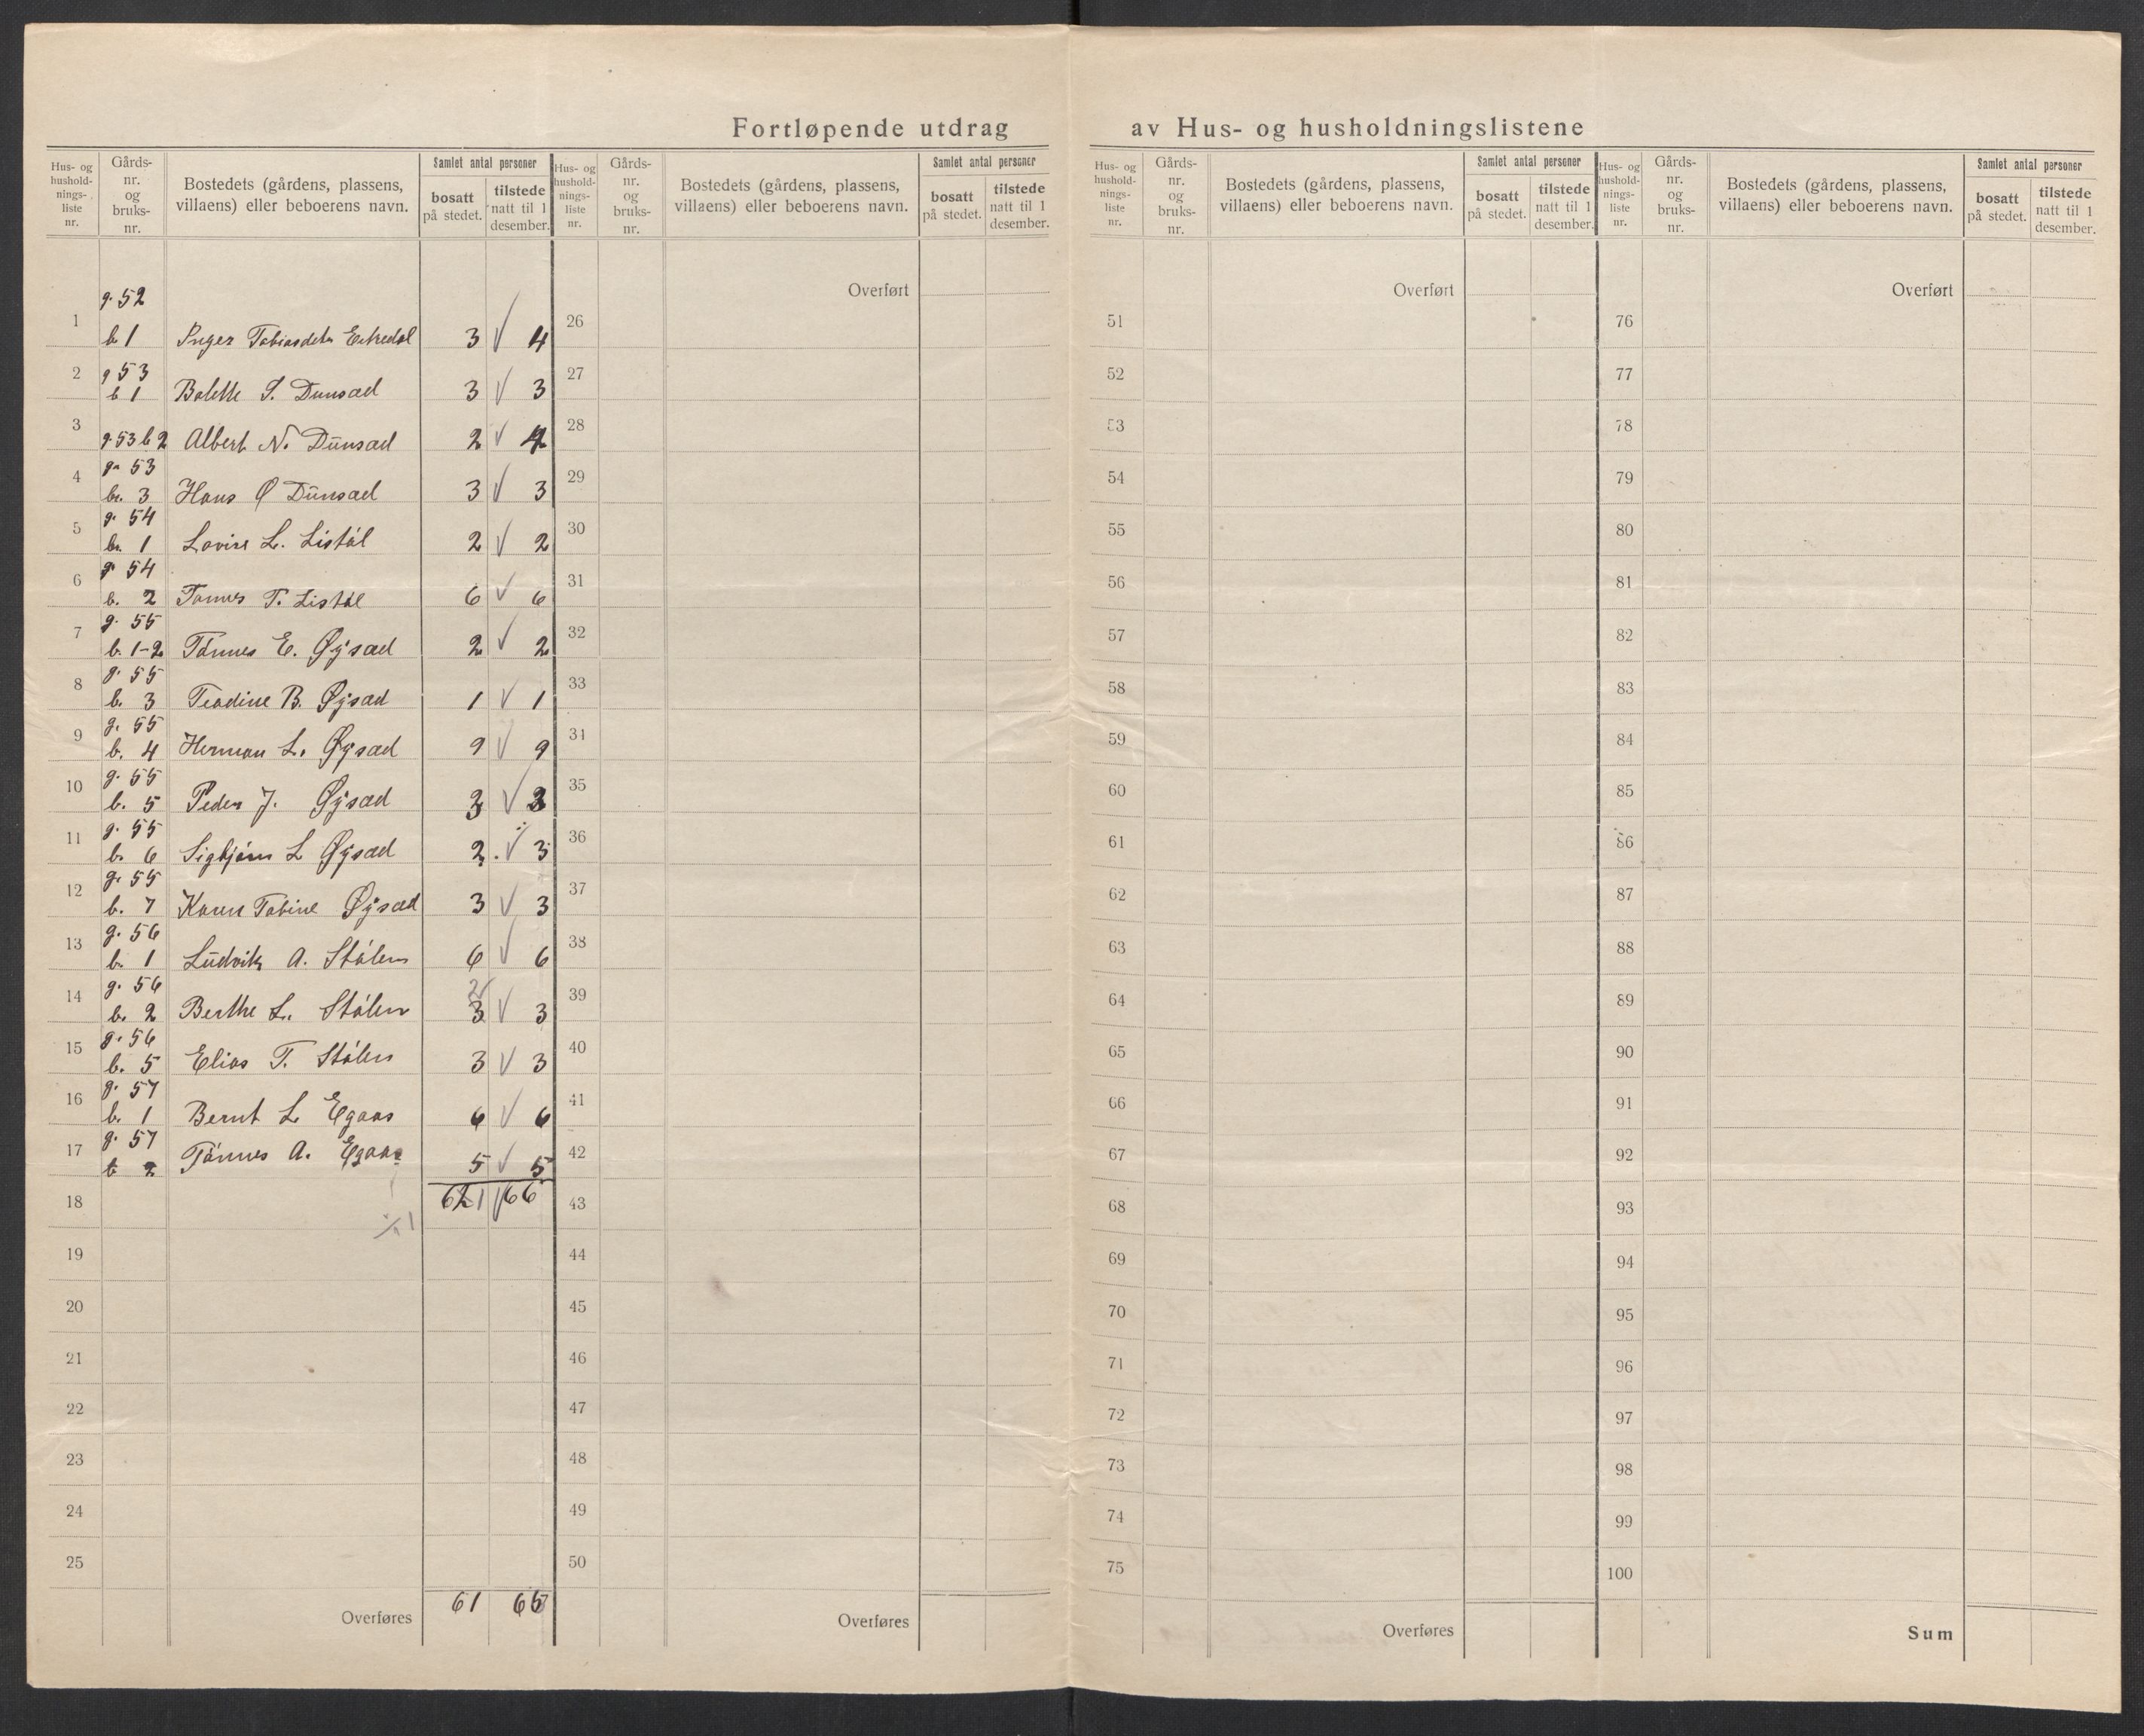 Fortløpende utdrag av Hus- og husholdningslistene
Hus- og hushold-nings-liste nr. Gårds-nr. og bruks-nr. Bostedets (gårdens, plassens, villaens) eller beboerens navn. Samlet antal personer bosatt på stedet. tilstede natt til 1 desember.
Hus- og hushold-nings-liste nr. Gårds-nr. og bruks-nr. Bostedets (gårdens, plassens, villaens) eller beboerens navn. Samlet antal personer bosatt på stedet. tilstede natt til 1 desember.
Hus- og hushold-nings-liste nr. Gårds-nr. og bruks-nr. Bostedets (gårdens, plassens, villaens) eller beboerens navn. Samlet antal personer bosatt på stedet. tilstede natt til 1 desember.
Hus- og hushold-nings-liste nr. Gårds-nr. og bruks-nr. Bostedets (gårdens, plassens, villaens) eller beboerens navn. Samlet antal personer bosatt på stedet. tilstede natt til 1 desember.
Overført Overført Overført
1 g. 52 b 1 Inger Tobiasdtr 3 4
2 g 53 b 1 Bolette T. Dunsæd 3 3
3 g. 53 b 2 Albert N. Dunsæd 2
4 g. 53 br. 3 Hans Ø Dunsæd 3 3
5 g. 54 br. 1 Lovise L. Listøl 2 2
6 g. 54 b. 2 Tønnes T. Listøl 6 6
7 g. 55 b. 1-2 Tønnes E. Øysæd 2 2
8 g. 55 b. 3 Teodine B. Øysæd 1 1
9 g. 55 b. 4 Herman L. Øysæd 9 9
10 g. 55 b. 5 Peder J. Øysæd 3 3
11 g. 55 b. 6 Sigbjørn L Øysæd 2 3
12 g. 55 b. 7 Karen Tobine Øysæd 3 3
13 g. 56 b. 1 Ludvik A. Stølen 6 6
14 g. 56 b. 2 Berthe L. Stølen 2 3 3
15 g. 56 b. 5 Elias T. Stølen 3 3
16 g. 57 b. 1 Bernt L Egaas 6 6
17 g. 57 b 2 Tønnes A. Egaas 5 5
18 66
19
20
21
22
23
24
25
Overføres 61 65
26
27
28
29
30
31
32
33
31
35
36
37
38
39
40
41
42
43
44
45
46
47
48
49
50
Overføres
51
52
53
54
55
56
57
58
59
60
61
62
63
64
65
66
67
68
69
70
71
72
73
74
75
Overføres
76
77
78
79
80
81
82
83
84
85
86
87
88
89
90
91
92
93
94
95
96
97
98
99
100
Sum